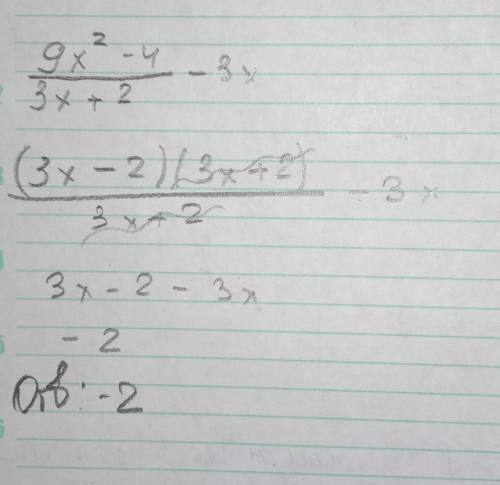 9x² - 4
3x + 2
- 3x
(3x - 2)(3x + 2)
3x + 2
- 3x
3x - 2 - 3x
- 2
Отв: -2